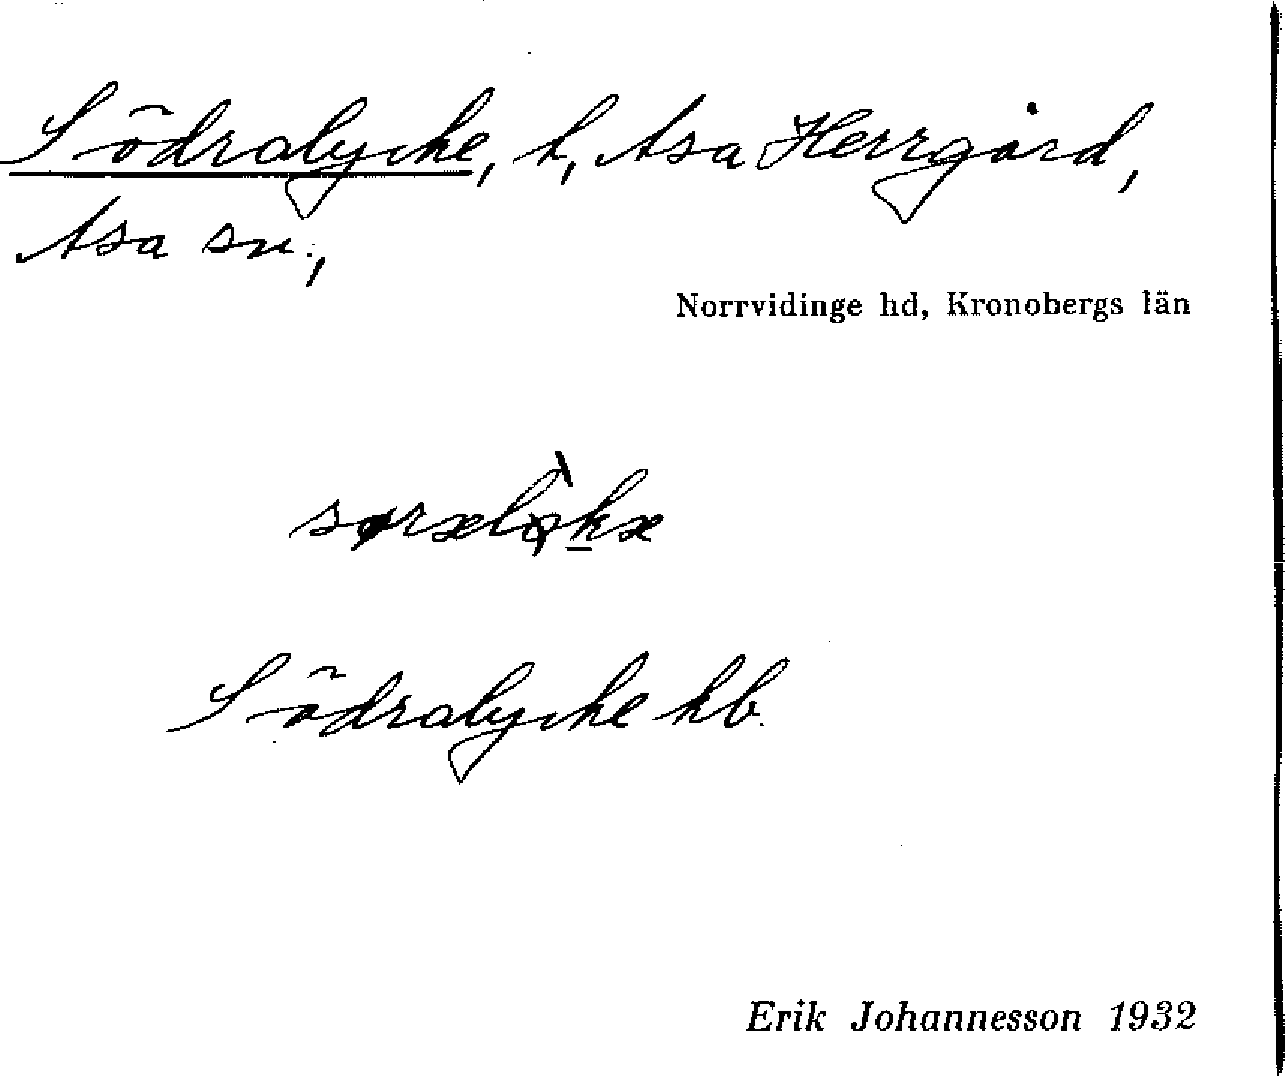 Södralycke, t, Asa Herrgård,
Asa sn.,
Norrvidinge hd, Kronobergs län
Södralycke kb.
Erik Johannesson 1932